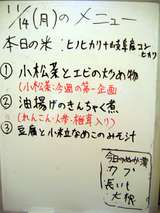 11/14(月)のメニュー
本日の米:ヒノヒカリ+岐阜産コシヒカリ
① 小松菜とエビの炒め物
(小松菜:今週の第一企画)
② 油揚げのきんちゃく煮
(れんこん・人参・椎茸入り)
③ 豆腐と小粒なめこのみそ汁
今日のぬか漬
カブ
長いも
大根